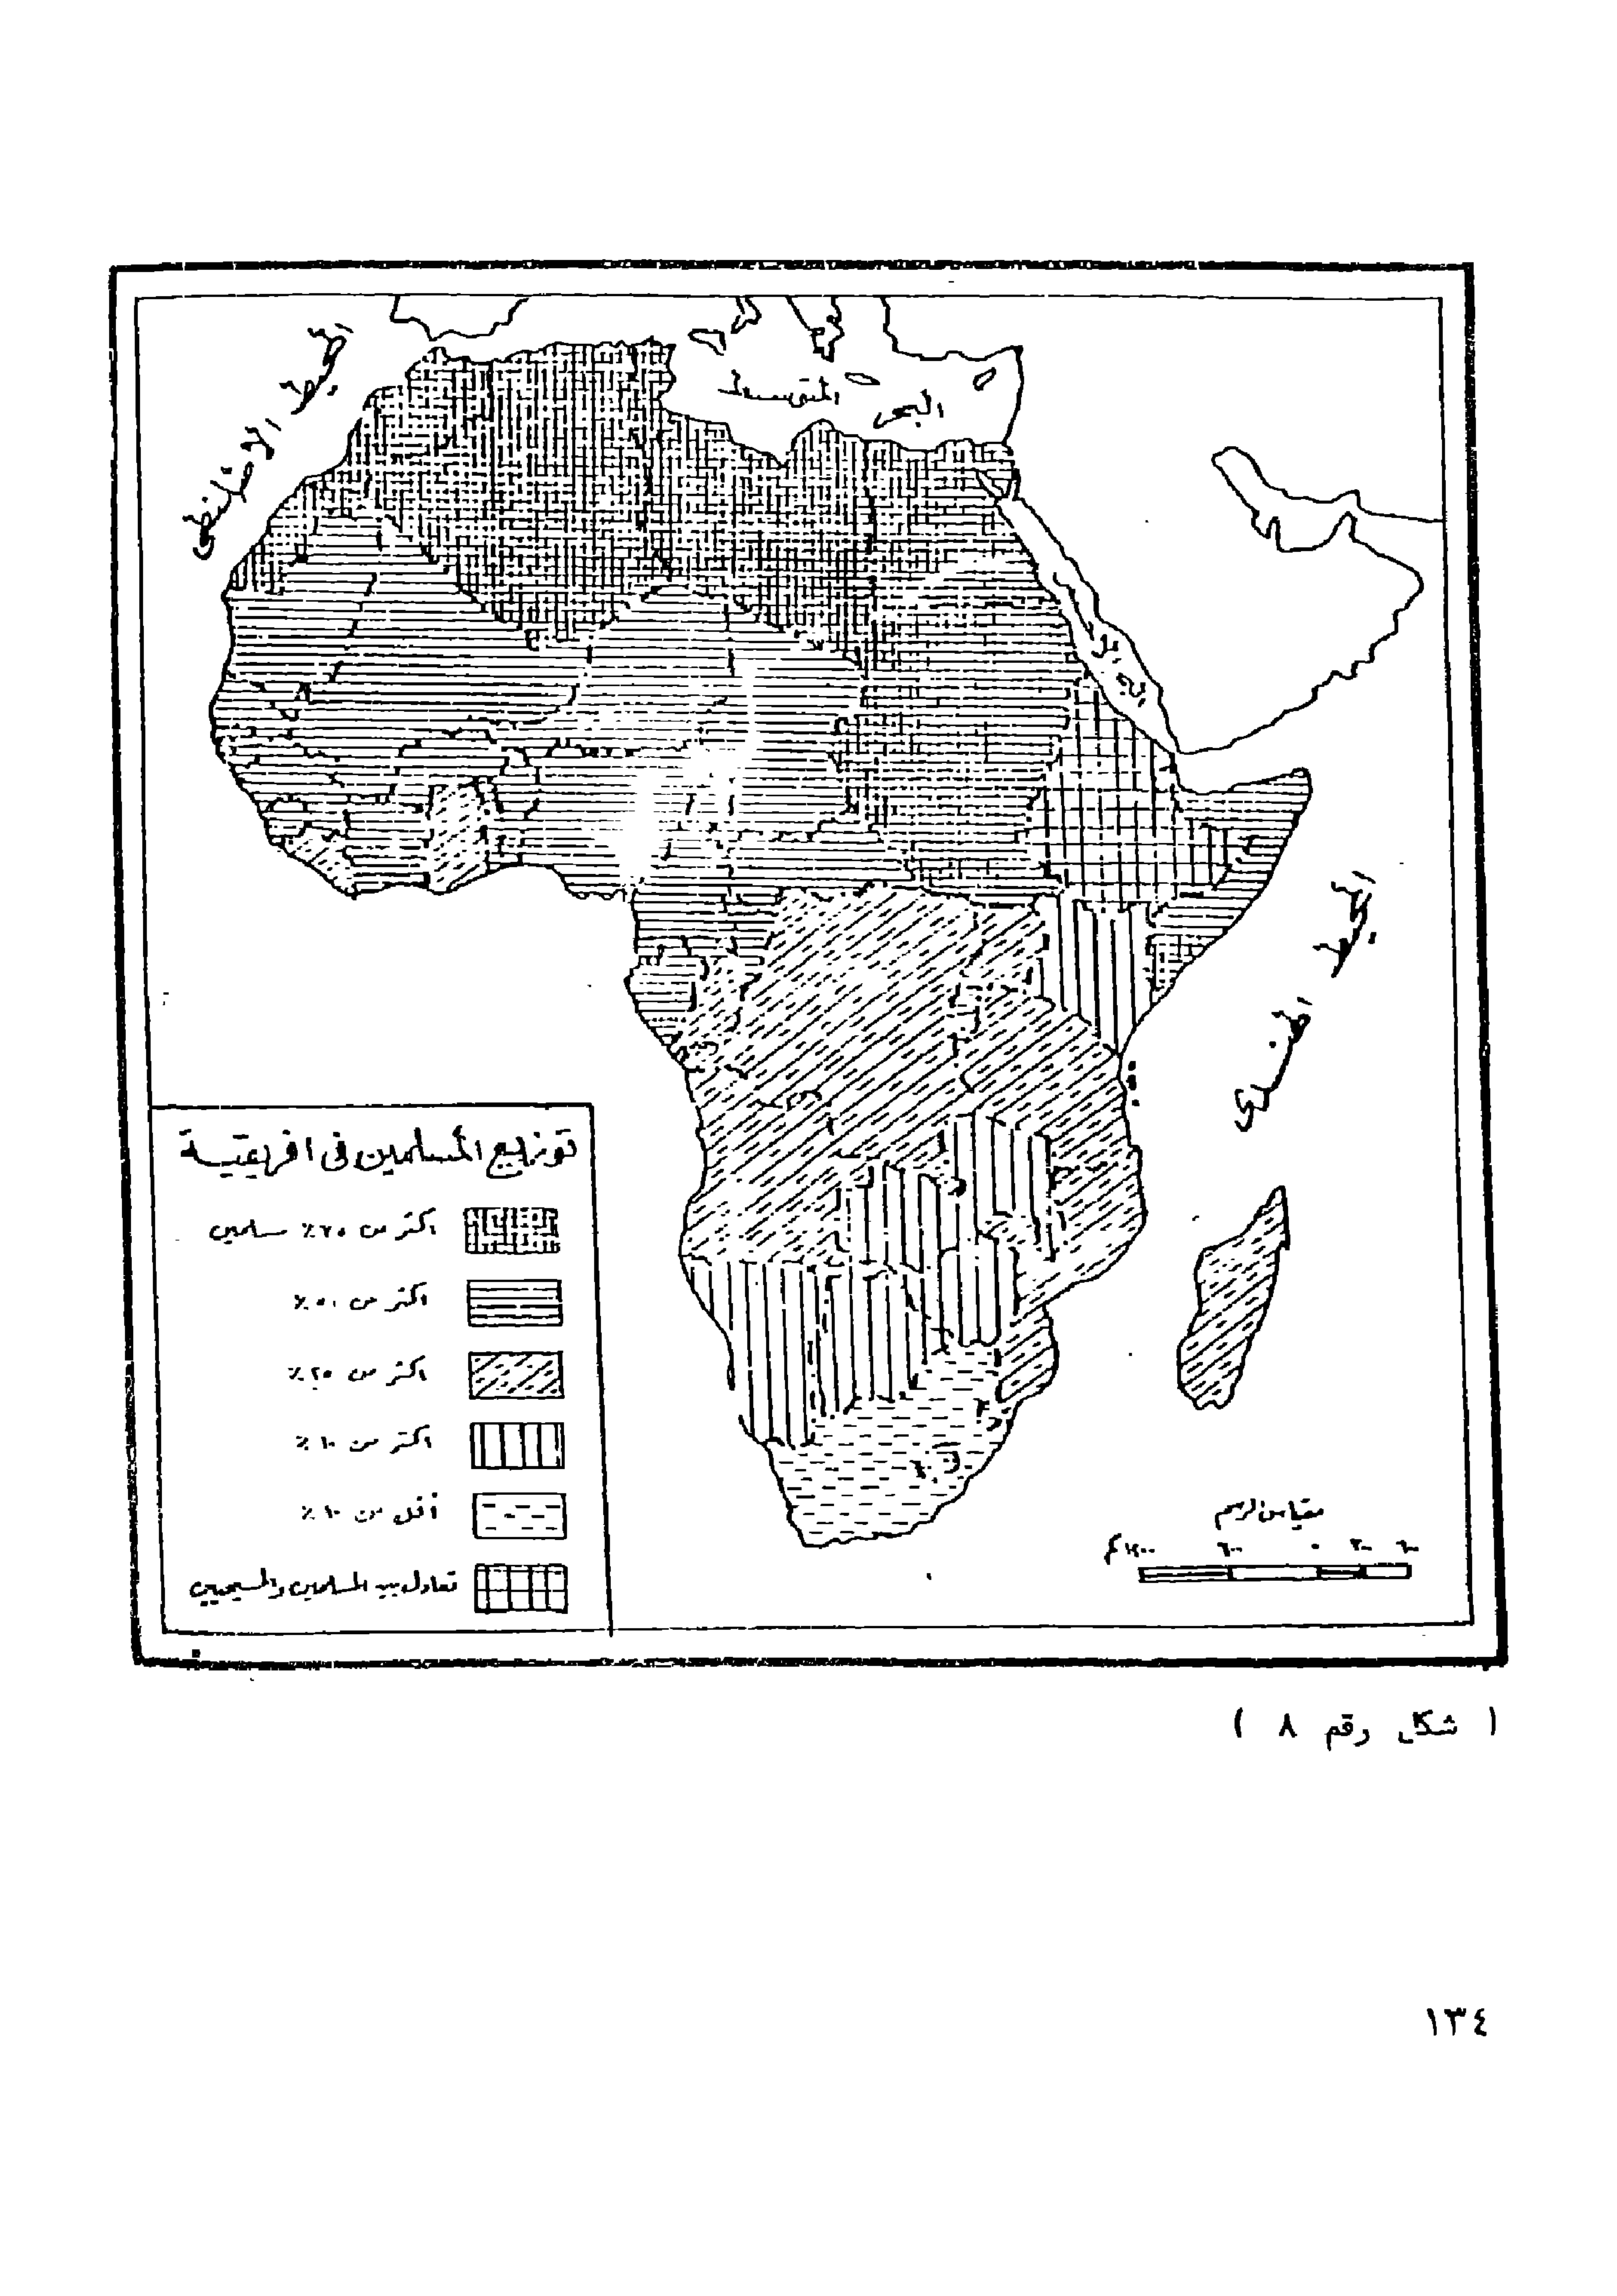 المحيط الاطلنطى
البحر المتوسط
البحر
المحيط الهندى
توزيع المسلمين فى افريقية
اكثر من ٧٥٪ مسلمين
اكثر من ٥٠٪
اكثر من ٢٥٪
اكثر من ١٠٪
أقل من ١٠٪
تعادل بين المسلمين والمسيحيين
مقياس الرسم
( شكل رقم ٨ )
١٣٤